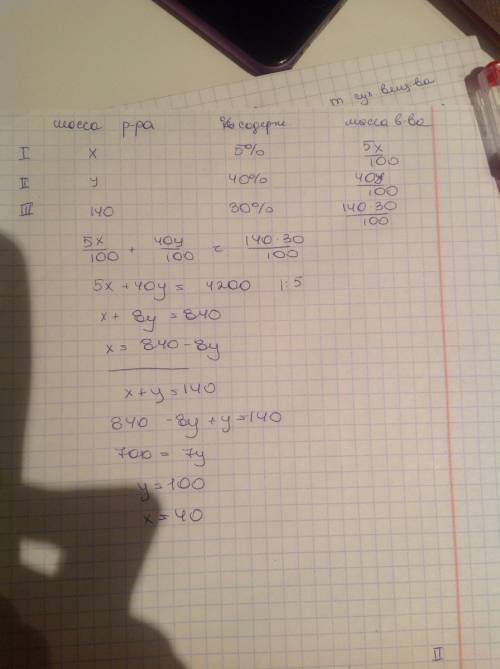 m сух вещ-ва
масса р-ра % содерж масса в-ва
I x 5% 5x/100
II y 40% 40y/100
III 140 30% 140·30/100
5x/100 + 40y/100 = 140·30/100
5x + 40y = 4200 |:5
x + 8y = 840
x = 840 - 8y
x + y = 140
840 - 8y + y = 140
700 = 7y
y = 100
x = 40
II